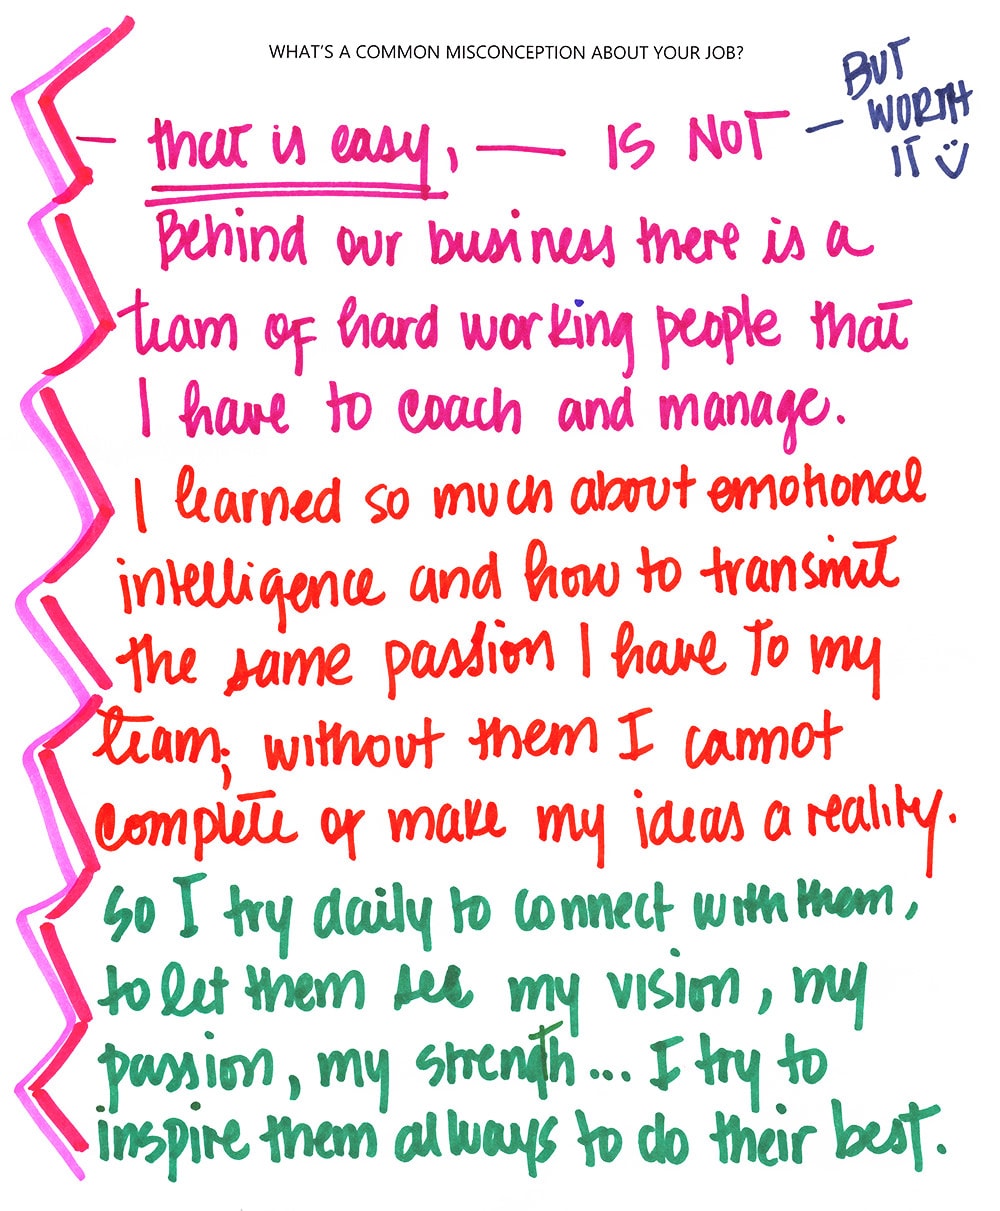 WHAT'S A COMMON MISCONCEPTION ABOUT YOUR JOB?
- that is easy, — IS NOT - BUT WORTH IT
Behind our business there is a
team of hard working people that
I have to coach and manage.
I learned so much about emotional
intelligence and how to transmit
the same passion I have to my
team; without them I cannot
complete or make my ideas a reality.
So I try daily to connect with them,
to let them see my vision, my
passion, my strength... I try to
inspire them always to do their best.